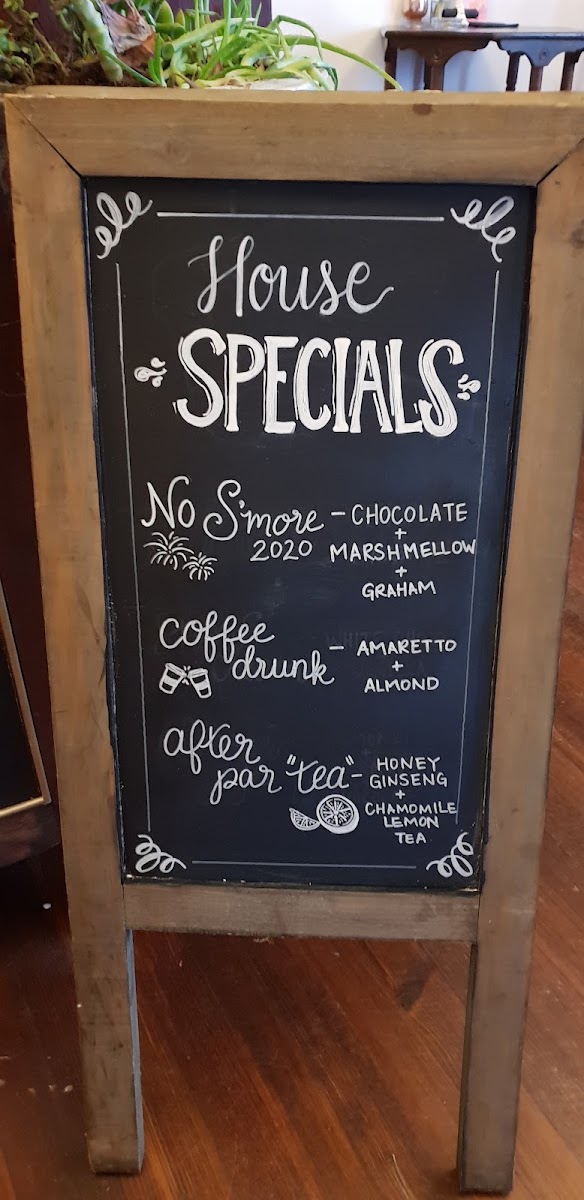 House
SPECIALS
No S'more - CHOCOLATE
2020 +
MARSHMELLOW
+
GRAHAM
coffee
drunk - AMARETTO
+
ALMOND
after
par "tea" - HONEY
GINSENG
+
CHAMOMILE
LEMON
TEA